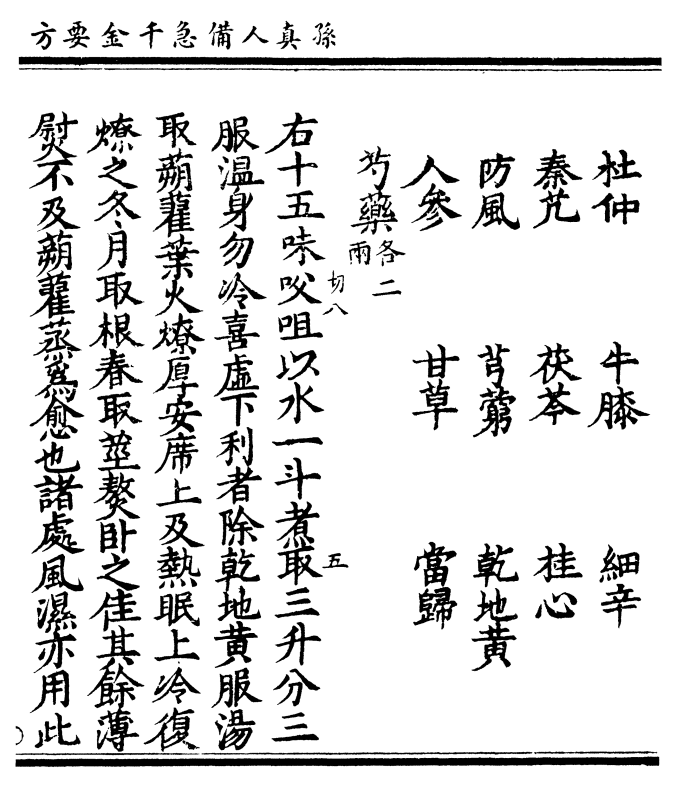 孫真人備急千金要方
杜仲 牛膝 細辛
秦艽 茯苓 桂心
防風 芎藭 乾地黄
人參 甘草 當歸
芍藥各二兩
右十五味㕮咀以水一斗煮取三升分三
切八 五
服溫身勿冷喜虛下利者除乾地黄服湯
取蒴藋葉火燎厚安席上及熱眠上冷復
燎之冬月取根春取莖熬卧之佳其餘薄
熨不及蒴藋蒸爲愈也諸處風濕亦用此